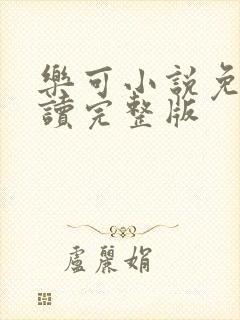 樂可小說免
讀完整版
盧麗娟